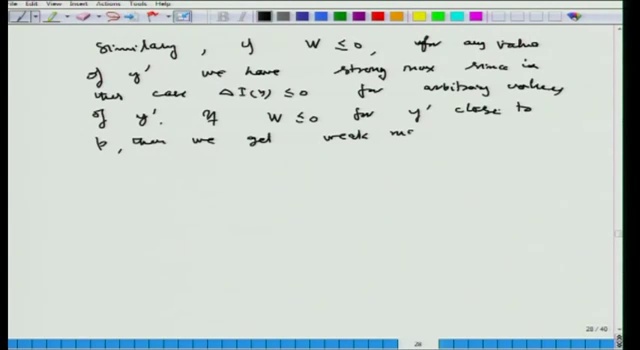 Edit View Insert Actions Tools Help
Similary, if W ≤ 0, for any value
of y' we have strong max since in
this case ΔI(y) ≤ 0 for arbitrary values
of y'. If W ≤ 0 for y' close to
p, then we get weak m
28 / 40
28